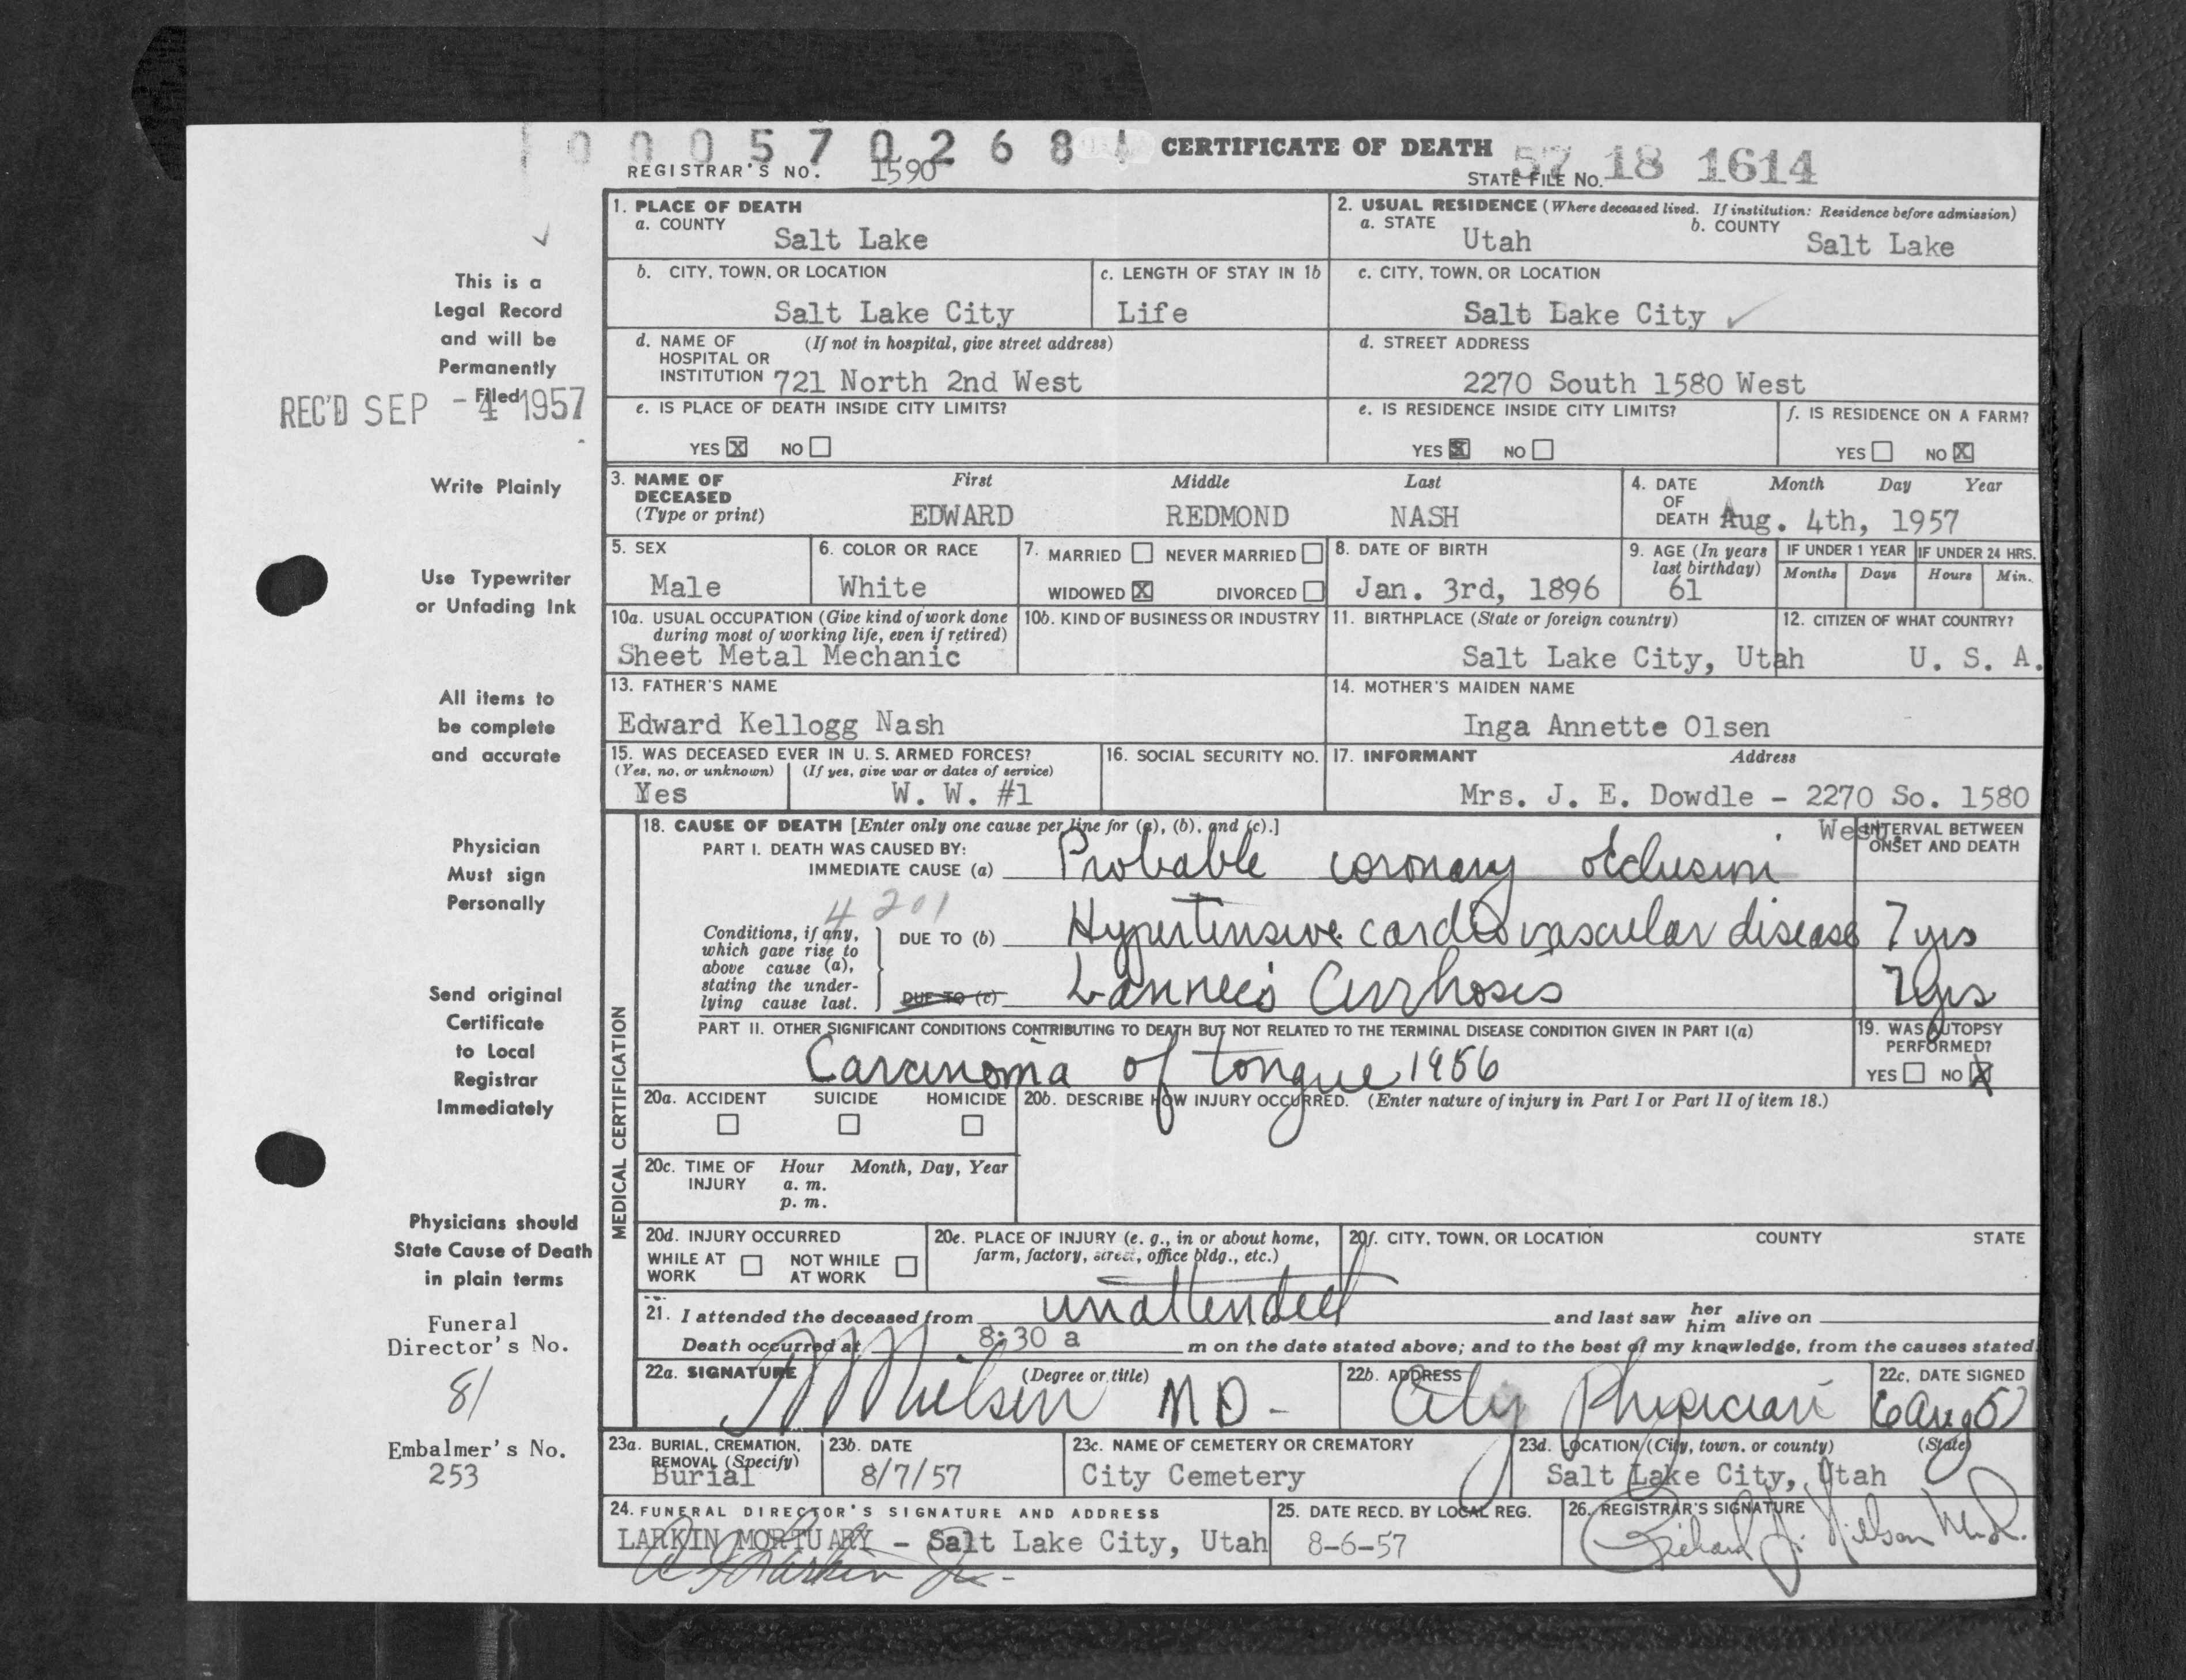 000570268
CERTIFICATE OF DEATH
REGISTRAR'S NO. 1590
STATE FILE NO. 57 18 1614
1. PLACE OF DEATH
a. COUNTY
Salt Lake
2. USUAL RESIDENCE (Where deceased lived. If institution: Residence before admission)
a. STATE
Utah
b. COUNTY
Salt Lake
b. CITY, TOWN, OR LOCATION
Salt Lake City
c. LENGTH OF STAY IN 1b
Life
c. CITY, TOWN, OR LOCATION
Salt Lake City
d. NAME OF (If not in hospital, give street address)
HOSPITAL OR
INSTITUTION 721 North 2nd West
d. STREET ADDRESS
2270 South 1580 West
e. IS PLACE OF DEATH INSIDE CITY LIMITS?
YES X NO
e. IS RESIDENCE INSIDE CITY LIMITS?
YES X NO
f. IS RESIDENCE ON A FARM?
YES NO X
3. NAME OF DECEASED
(Type or print)
First Middle Last
EDWARD REDMOND NASH
4. DATE OF DEATH
Month Day Year
Aug. 4th, 1957
5. SEX
Male
6. COLOR OR RACE
White
7. MARRIED NEVER MARRIED
WIDOWED X DIVORCED
8. DATE OF BIRTH
Jan. 3rd, 1896
9. AGE (In years
last birthday)
61
IF UNDER 1 YEAR
Months Days
IF UNDER 24 HRS.
Hours Min.
10a. USUAL OCCUPATION (Give kind of work done
during most of working life, even if retired)
Sheet Metal Mechanic
10b. KIND OF BUSINESS OR INDUSTRY
11. BIRTHPLACE (State or foreign country)
Salt Lake City, Utah
12. CITIZEN OF WHAT COUNTRY?
U. S. A.
13. FATHER'S NAME
Edward Kellogg Nash
14. MOTHER'S MAIDEN NAME
Inga Annette Olsen
15. WAS DECEASED EVER IN U. S. ARMED FORCES?
(Yes, no, or unknown) (If yes, give war or dates of service)
Yes W. W. #1
16. SOCIAL SECURITY NO.
17. INFORMANT Address
Mrs. J. E. Dowdle - 2270 So. 1580
West.
MEDICAL CERTIFICATION
18. CAUSE OF DEATH [Enter only one cause per line for (a), (b), and (c).]
PART I. DEATH WAS CAUSED BY:
IMMEDIATE CAUSE (a) Probable coronary occlusion
INTERVAL BETWEEN
ONSET AND DEATH
4201
Conditions, if any,
which gave rise to
above cause (a),
stating the under-
lying cause last.
DUE TO (b) Hypertensive cardiovascular disease 7 yrs
DUE TO (c) Lannec's Cirrhosis 7 yrs
PART II. OTHER SIGNIFICANT CONDITIONS CONTRIBUTING TO DEATH BUT NOT RELATED TO THE TERMINAL DISEASE CONDITION GIVEN IN PART I(a)
Carcinoma of tongue 1956
19. WAS AUTOPSY
PERFORMED?
YES NO X
20a. ACCIDENT SUICIDE HOMICIDE
20b. DESCRIBE HOW INJURY OCCURRED. (Enter nature of injury in Part I or Part II of item 18.)
20c. TIME OF INJURY
Hour Month, Day, Year
a. m.
p. m.
20d. INJURY OCCURRED
WHILE AT WORK
NOT WHILE AT WORK
20e. PLACE OF INJURY (e. g., in or about home,
farm, factory, street, office bldg., etc.)
20f. CITY, TOWN, OR LOCATION COUNTY STATE
21. I attended the deceased from unattended and last saw her him alive on
Death occurred at 8:30 a m on the date stated above; and to the best of my knowledge, from the causes stated.
22a. SIGNATURE (Degree or title)
Nielsen MD-
22b. ADDRESS
City Physician
22c. DATE SIGNED
6 Aug 57
23a. BURIAL, CREMATION,
REMOVAL (Specify)
Burial
23b. DATE
8/7/57
23c. NAME OF CEMETERY OR CREMATORY
City Cemetery
23d. LOCATION (City, town, or county) (State)
Salt Lake City, Utah
24. FUNERAL DIRECTOR'S SIGNATURE AND ADDRESS
LARKIN MORTUARY - Salt Lake City, Utah
Larkin Jr.
25. DATE RECD. BY LOCAL REG.
8-6-57
26. REGISTRAR'S SIGNATURE
Richard J. Nielson M.D.
This is a
Legal Record
and will be
Permanently
Filed
REC'D SEP -4 1957
Write Plainly
Use Typewriter
or Unfading Ink
All items to
be complete
and accurate
Physician
Must sign
Personally
Send original
Certificate
to Local
Registrar
Immediately
Physicians should
State Cause of Death
in plain terms
Funeral
Director's No.
81
Embalmer's No.
253